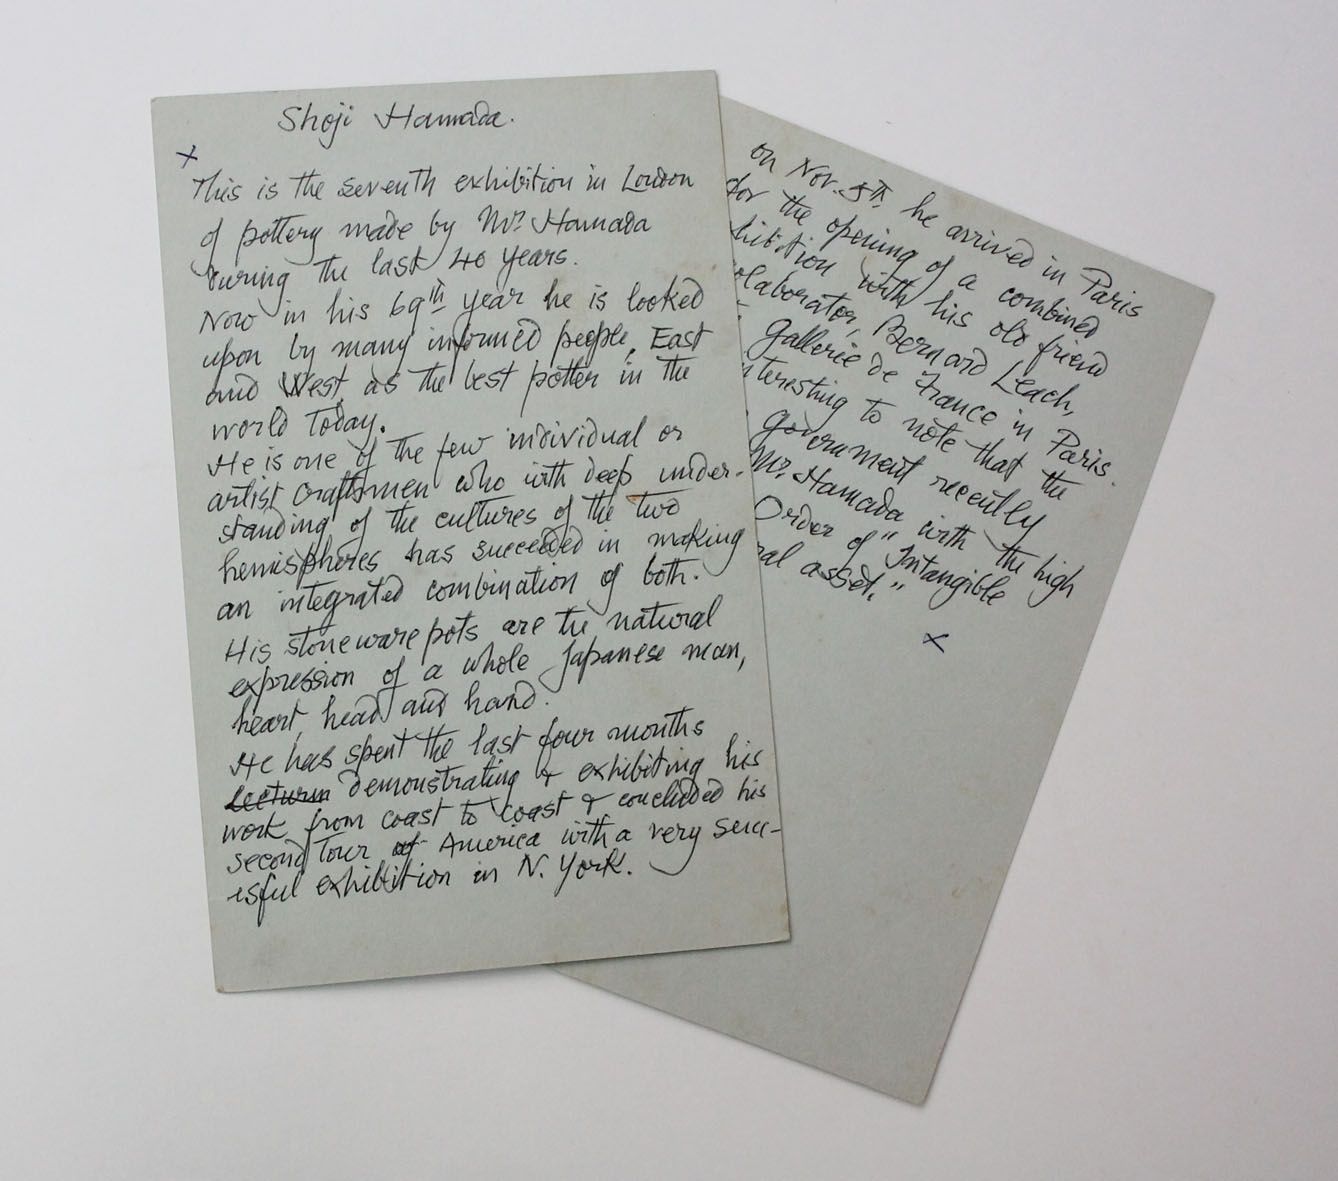 Shoji Hamada.
x
This is the seventh exhibition in London
of pottery made by Mr. Hamada
during the last 40 years.
Now in his 69th year he is looked
upon by many informed people, East
and West, as the best potter in the
world today.
He is one of the few individual or
artist craftsmen who with deep under-
standing of the cultures of the two
hemispheres has succeeded in making
an integrated combination of both.
His stoneware pots are the natural
expression of a whole Japanese man,
heart, head and hand.
He has spent the last four months
demonstrating & exhibiting his
work from coast to coast & concluded his
second tour of America with a very succ-
esful exhibition in N. York.
on Nov. 5th. he arrived in Paris
for the opening of a combined
hibition with his old friend
olaborator, Bernard Leach,
Gallerie de France in Paris.
nteresting to note that the
government recently
Mr. Hamada with the high
Order of "Intangible
ral asset."
x